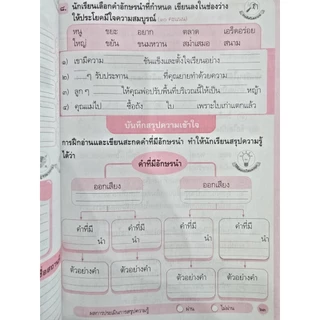 ๔. นักเรียนเลือกคำอักษรนำที่กำหนด เขียนลงในช่องว่าง
ให้ประโยคมีใจความสมบูรณ์
หนู ขยะ อยาก ตลาด เอร็ดอร่อย
ใหญ่ ขยัน ขนมหวาน สม่ำเสมอ สนาม
๑) เขามีความ ขันแข็งและตั้งใจเรียนอย่าง
๒) ๆ รับประทาน ที่คุณยายทำด้วยความ
๓) ลูก ๆ ให้คุณพ่อปรับพื้นที่บริเวณนี้ให้เป็น หญ้า
๔) คุณแม่ไป ซื้อถัง ใบ เพราะใบเก่าแตกแล้ว
บันทึกสรุปความเข้าใจ
การฝึกอ่านและเขียนสะกดคำที่มีอักษรนำ ทำให้นักเรียนสรุปความรู้
ได้ว่า
คำที่มีอักษรนำ
ออกเสียง ออกเสียง
คำที่มี คำที่มี คำที่มี คำที่มี
นำ นำ นำ นำ
ตัวอย่างคำ ตัวอย่างคำ ตัวอย่างคำ ตัวอย่างคำ
ผลการประเมินการสรุปความรู้ ผ่าน ไม่ผ่าน